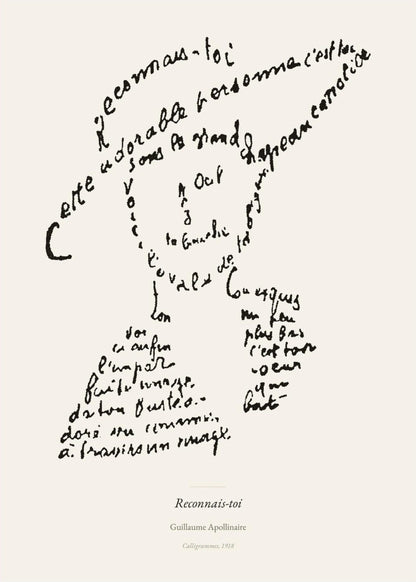 Reconnais-toi
Cette adorable personne c'est toi
Sous le grand chapeau canotier
Oeil
Nez
La bouche
Voici l'ovale de ta figure
Ton cou exquis
Voi
ci enfin
l'impar
faite image
de ton buste a
doré vu comme
à travers un nuage
un peu
plus bas
c'est ton
coeur
qui
bat
Reconnais-toi
Guillaume Apollinaire
Calligrammes, 1918